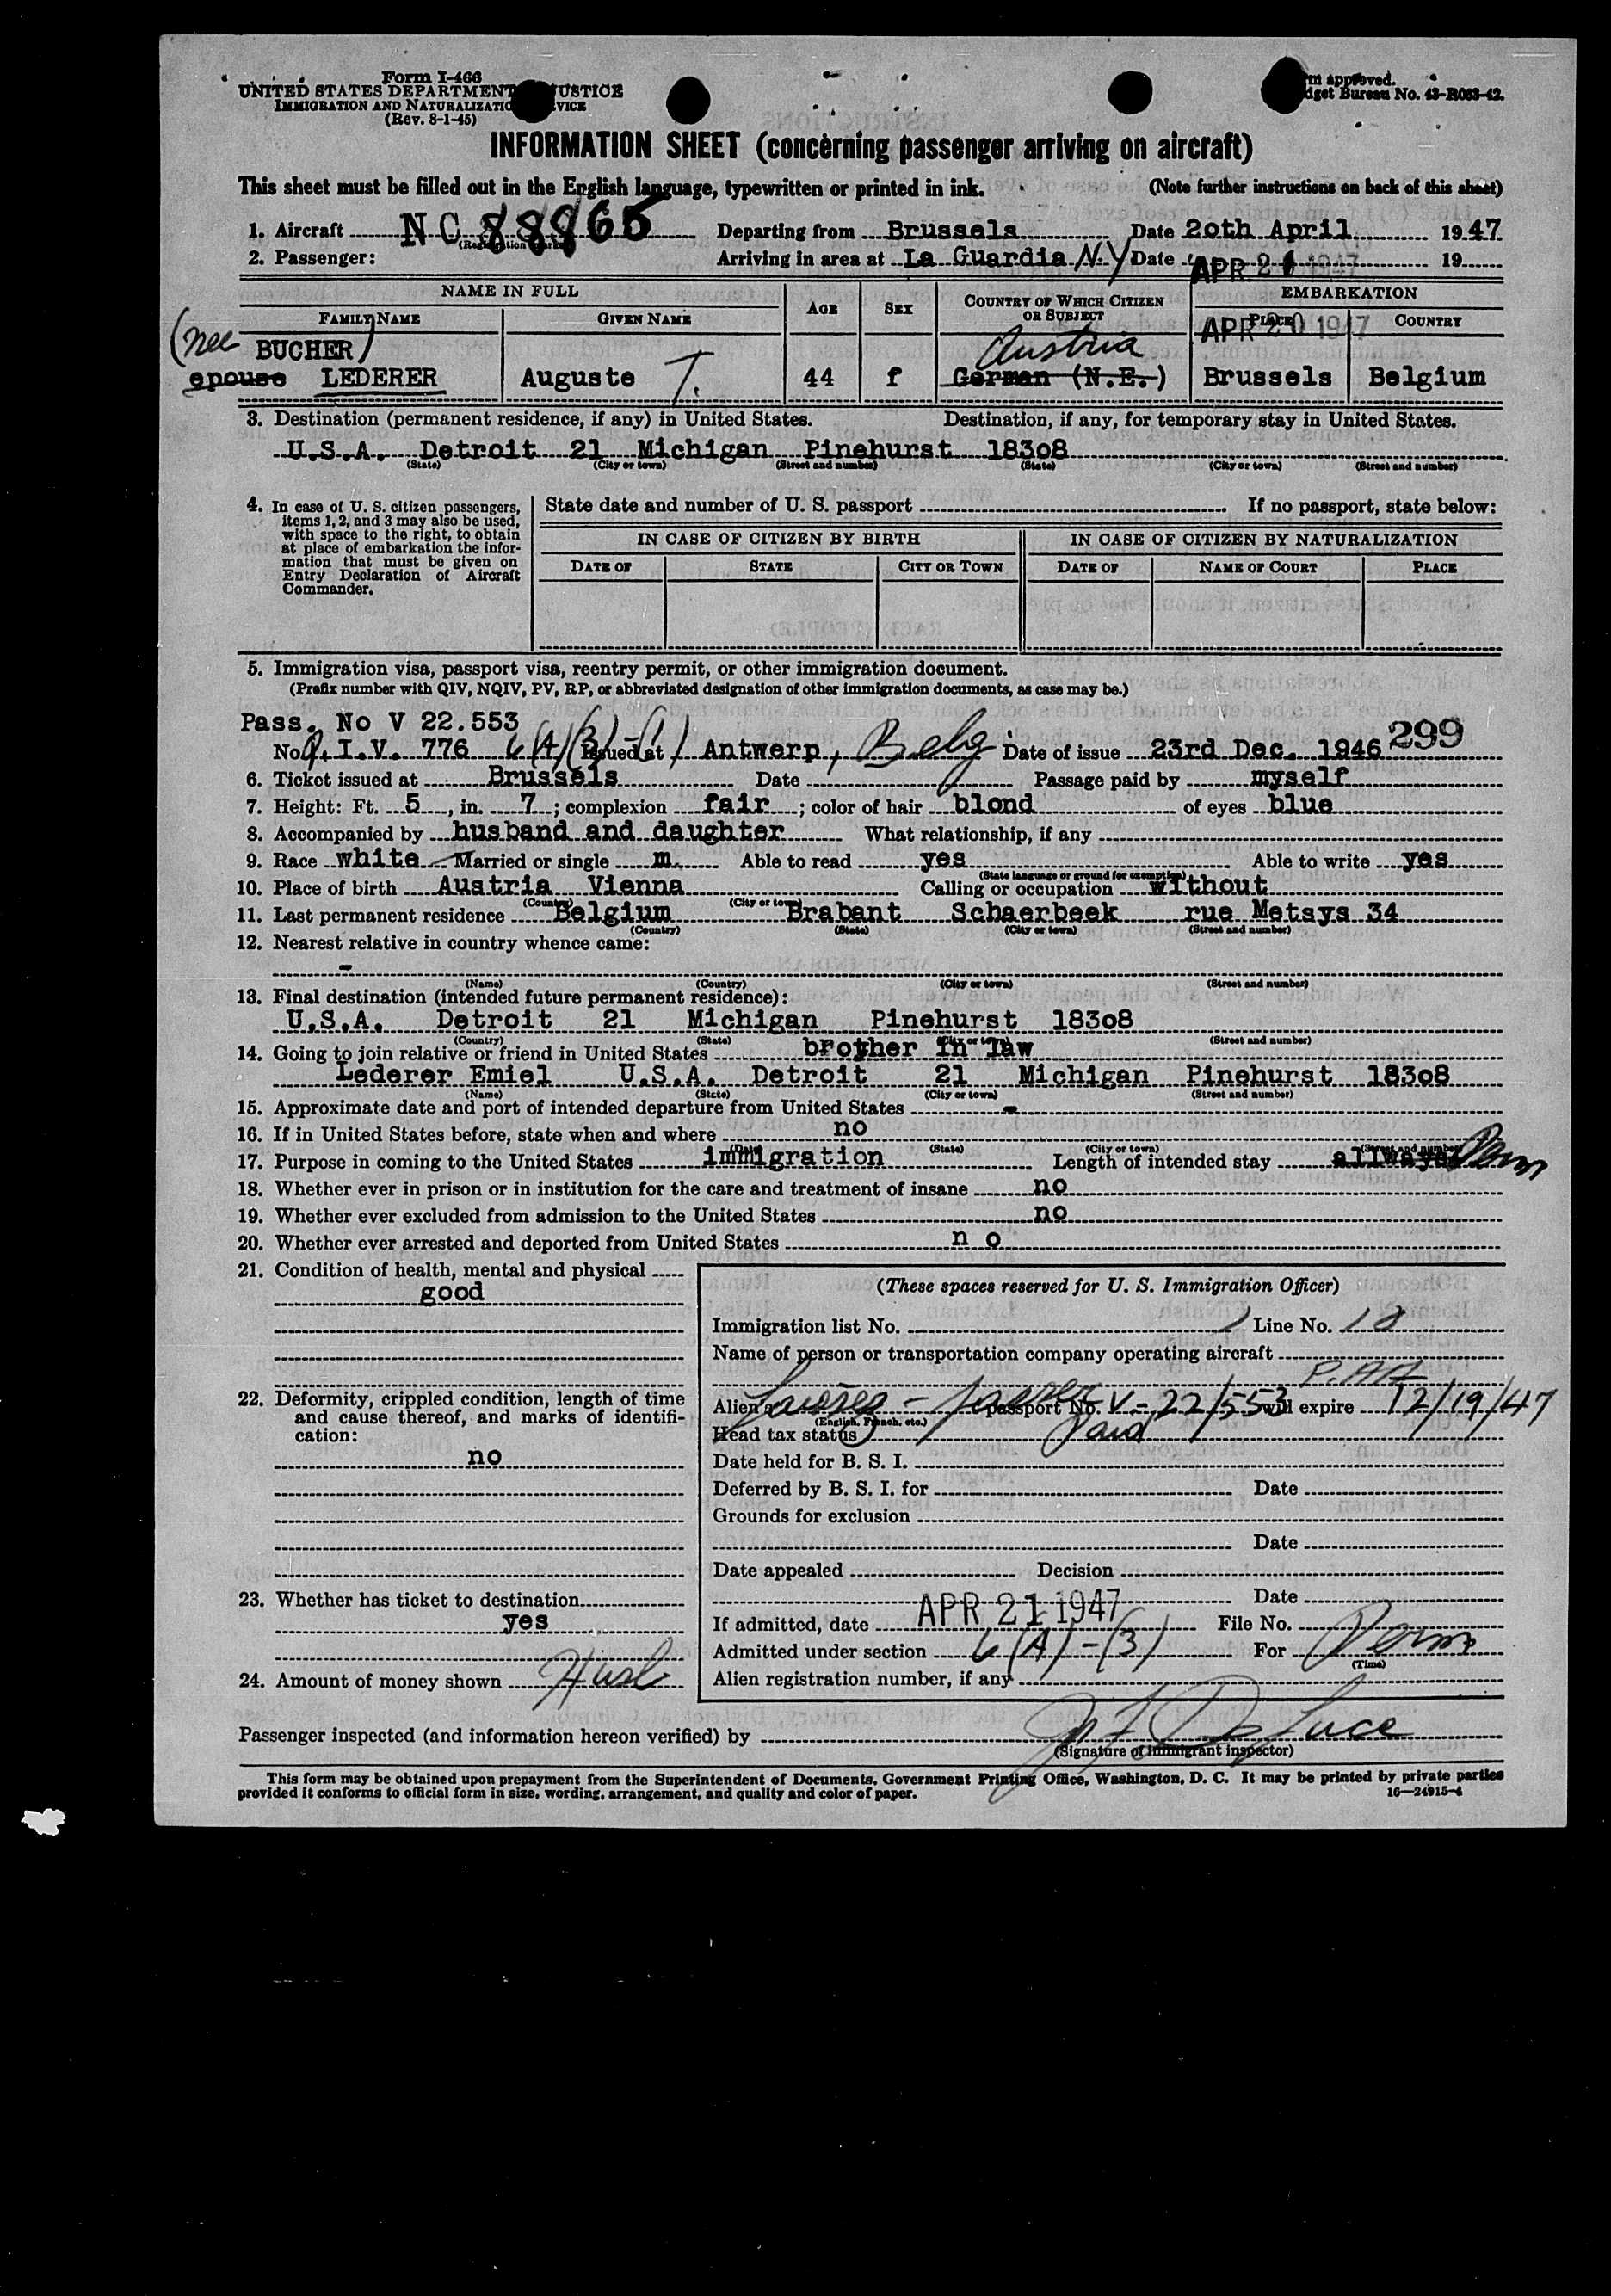 Form I-466
UNITED STATES DEPARTMENT JUSTICE
IMMIGRATION AND NATURALIZATIO VICE
(Rev. 8-1-45)
m approved.
dget Bureau No. 43-R063-42.
INFORMATION SHEET (concerning passenger arriving on aircraft)
This sheet must be filled out in the English language, typewritten or printed in ink. (Note further instructions on back of this sheet)
1. Aircraft NC 88865 Departing from Brussels Date 2oth April 1947
(Registration mark)
2. Passenger: Arriving in area at La Guardia N.Y Date APR 21 1947 19
NAME IN FULL AGE SEX COUNTRY OF WHICH CITIZEN OR SUBJECT EMBARKATION
FAMILY NAME GIVEN NAME PLACE COUNTRY
APR 20 1947
(nee BUCHER) Austria
epouse LEDERER Auguste T. 44 f German (N.E.) Brussels Belgium
3. Destination (permanent residence, if any) in United States. Destination, if any, for temporary stay in United States.
U.S.A. Detroit 21 Michigan Pinehurst 183o8
(State) (City or town) (Street and number) (State) (City or town) (Street and number)
4. In case of U. S. citizen passengers, items 1, 2, and 3 may also be used, with space to the right, to obtain at place of embarkation the information that must be given on Entry Declaration of Aircraft Commander.
State date and number of U. S. passport If no passport, state below:
IN CASE OF CITIZEN BY BIRTH IN CASE OF CITIZEN BY NATURALIZATION
DATE OF STATE CITY OR TOWN DATE OF NAME OF COURT PLACE
5. Immigration visa, passport visa, reentry permit, or other immigration document.
(Prefix number with QIV, NQIV, PV, RP, or abbreviated designation of other immigration documents, as case may be.)
Pass. No V 22.553
No. Q.I.V. 776 6(A)(3)-(1) Issued at Antwerp, Belg. Date of issue 23rd Dec. 1946 299
6. Ticket issued at Brussels Date Passage paid by myself
7. Height: Ft. 5, in. 7; complexion fair; color of hair blond of eyes blue
8. Accompanied by husband and daughter What relationship, if any
9. Race white Married or single m. Able to read yes Able to write yes
(State language or ground for exemption)
10. Place of birth Austria Vienna Calling or occupation without
(Country) (City or town)
11. Last permanent residence Belgium Brabant Schaerbeek rue Metsys 34
(Country) (State) (City or town) (Street and number)
12. Nearest relative in country whence came:
-
(Name) (Country) (City or town) (Street and number)
13. Final destination (intended future permanent residence):
U.S.A. Detroit 21 Michigan Pinehurst 183o8
(Country) (State) (City or town) (Street and number)
14. Going to join relative or friend in United States brother in law
Lederer Emiel U.S.A. Detroit 21 Michigan Pinehurst 183o8
(Name) (State) (City or town) (Street and number)
15. Approximate date and port of intended departure from United States -
16. If in United States before, state when and where no
(Date) (State) (City or town) (Street and number)
17. Purpose in coming to the United States immigration Length of intended stay allways Perm
18. Whether ever in prison or in institution for the care and treatment of insane no
19. Whether ever excluded from admission to the United States no
20. Whether ever arrested and deported from United States n o
21. Condition of health, mental and physical
good
22. Deformity, crippled condition, length of time and cause thereof, and marks of identification:
no
23. Whether has ticket to destination
yes
24. Amount of money shown Husb
(These spaces reserved for U. S. Immigration Officer)
Immigration list No. 1 Line No. 18
Name of person or transportation company operating aircraft
P.AA
Alien's passport No. V-22/553 will expire 12/19/47
(English, French, etc.)
Head tax status Paid
Date held for B. S. I.
Deferred by B. S. I. for Date
Grounds for exclusion
Date
Date appealed Decision
Date
If admitted, date APR 21 1947 File No.
Admitted under section 6(A)-(3) For Perm
(Time)
Alien registration number, if any
Passenger inspected (and information hereon verified) by
(Signature of immigrant inspector)
This form may be obtained upon prepayment from the Superintendent of Documents, Government Printing Office, Washington, D. C. It may be printed by private parties
provided it conforms to official form in size, wording, arrangement, and quality and color of paper. 16—24915-4